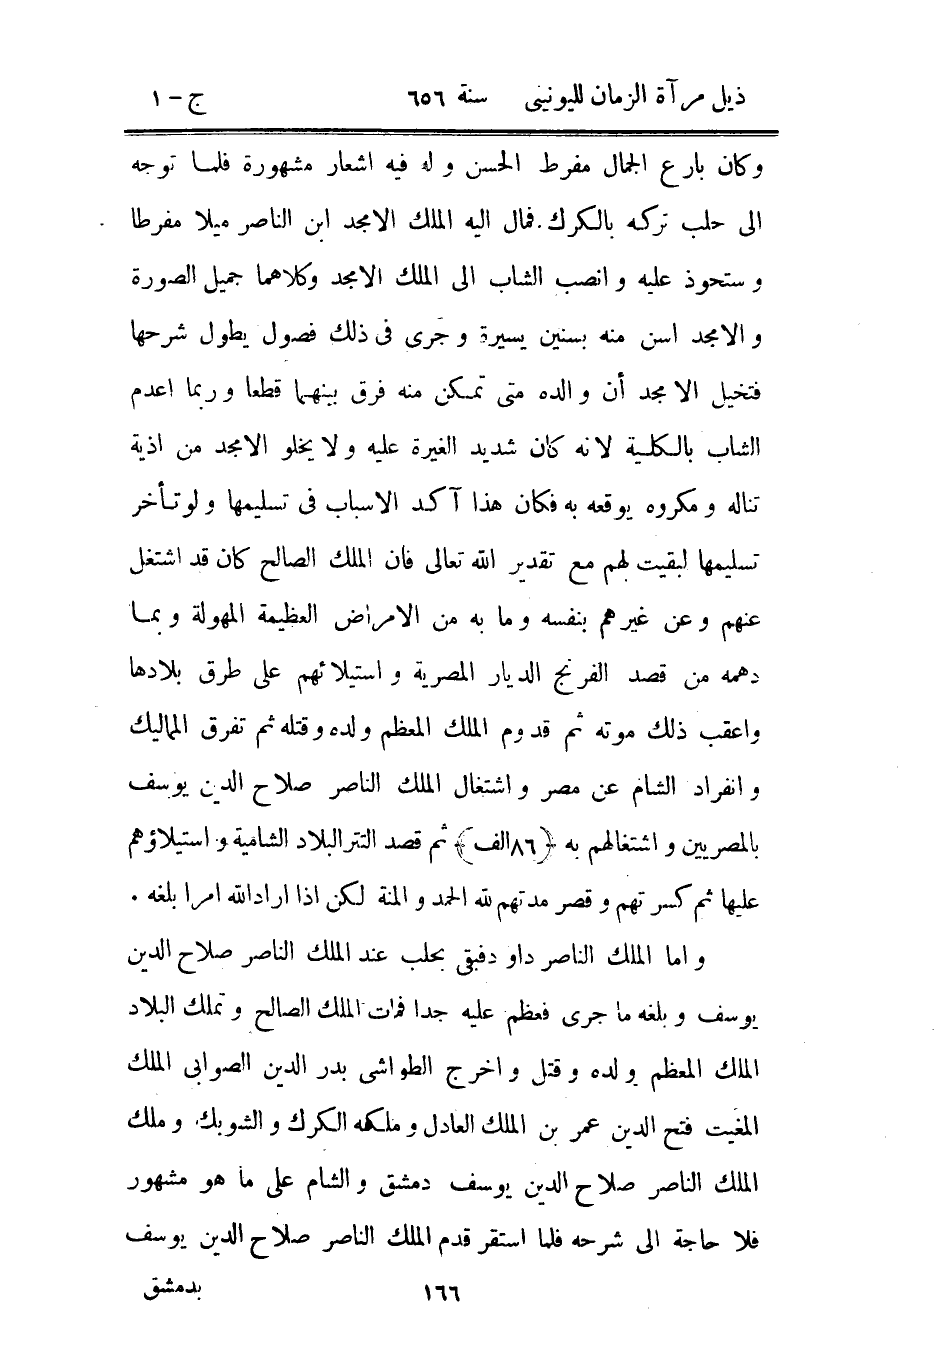 ذيل مرآة الزمان لليونينى سنة ٦٥٦ ج – ١
وكان بارع الجمال مفرط الحسن و له فيه اشعار مشهورة فلما توجه
الى حلب تركه بالكرك. فمال اليه الملك الامجد ابن الناصر ميلا مفرطا
و ستحوذ عليه و انصب الشاب الى الملك الامجد وكلاهما جميل الصورة
و الامجد اسن منه بسنين يسيرة و جرى فى ذلك فصول يطول شرحها
فتخيل الامجد أن والده متى تمكن منه فرق بينهما قطعا و ربما اعدم
الشاب بالكلية لانه كان شديد الغيرة عليه و لا يخلو الامجد من اذية
تناله و مكروه يوقعه به فكان هذا آكد الاسباب فى تسليمها و لو تأخر
تسليمها لبقيت لهم مع تقدير الله تعالى فان الملك الصالح كان قد اشتغل
عنهم و عن غيرهم بنفسه و ما به من الامراض العظيمة المهولة و بما
دهمه من قصد الفرنج الديار المصرية و استيلائهم على طرق بلادها
واعقب ذلك موته ثم قدوم الملك المعظم ولده و قتله ثم تفرق المماليك
و انفراد الشام عن مصر و اشتغال الملك الناصر صلاح الدين يوسف
بالمصريين و اشتغالهم به ﴿٨٦الف﴾ ثم قصد التتر البلاد الشامية و استيلاؤهم
عليها ثم كسرتهم و قصر مدتهم لله الحمد و المنة لكن اذا اراد الله امرا بلغه .
و اما الملك الناصر داود فبقى بحلب عند الملك الناصر صلاح الدين
يوسف و بلغه ما جرى فعظم عليه جدا فمات الملك الصالح و تملك البلاد
الملك المعظم ولده و قتل و اخرج الطواشى بدر الدين الصوابى الملك
المغيث فتح الدين عمر بن الملك العادل و ملكه الكرك و الشوبك و ملك
الملك الناصر صلاح الدين يوسف دمشق و الشام على ما هو مشهور
فلا حاجة الى شرحه فلما استقر قدم الملك الناصر صلاح الدين يوسف
١٦٦ بدمشق